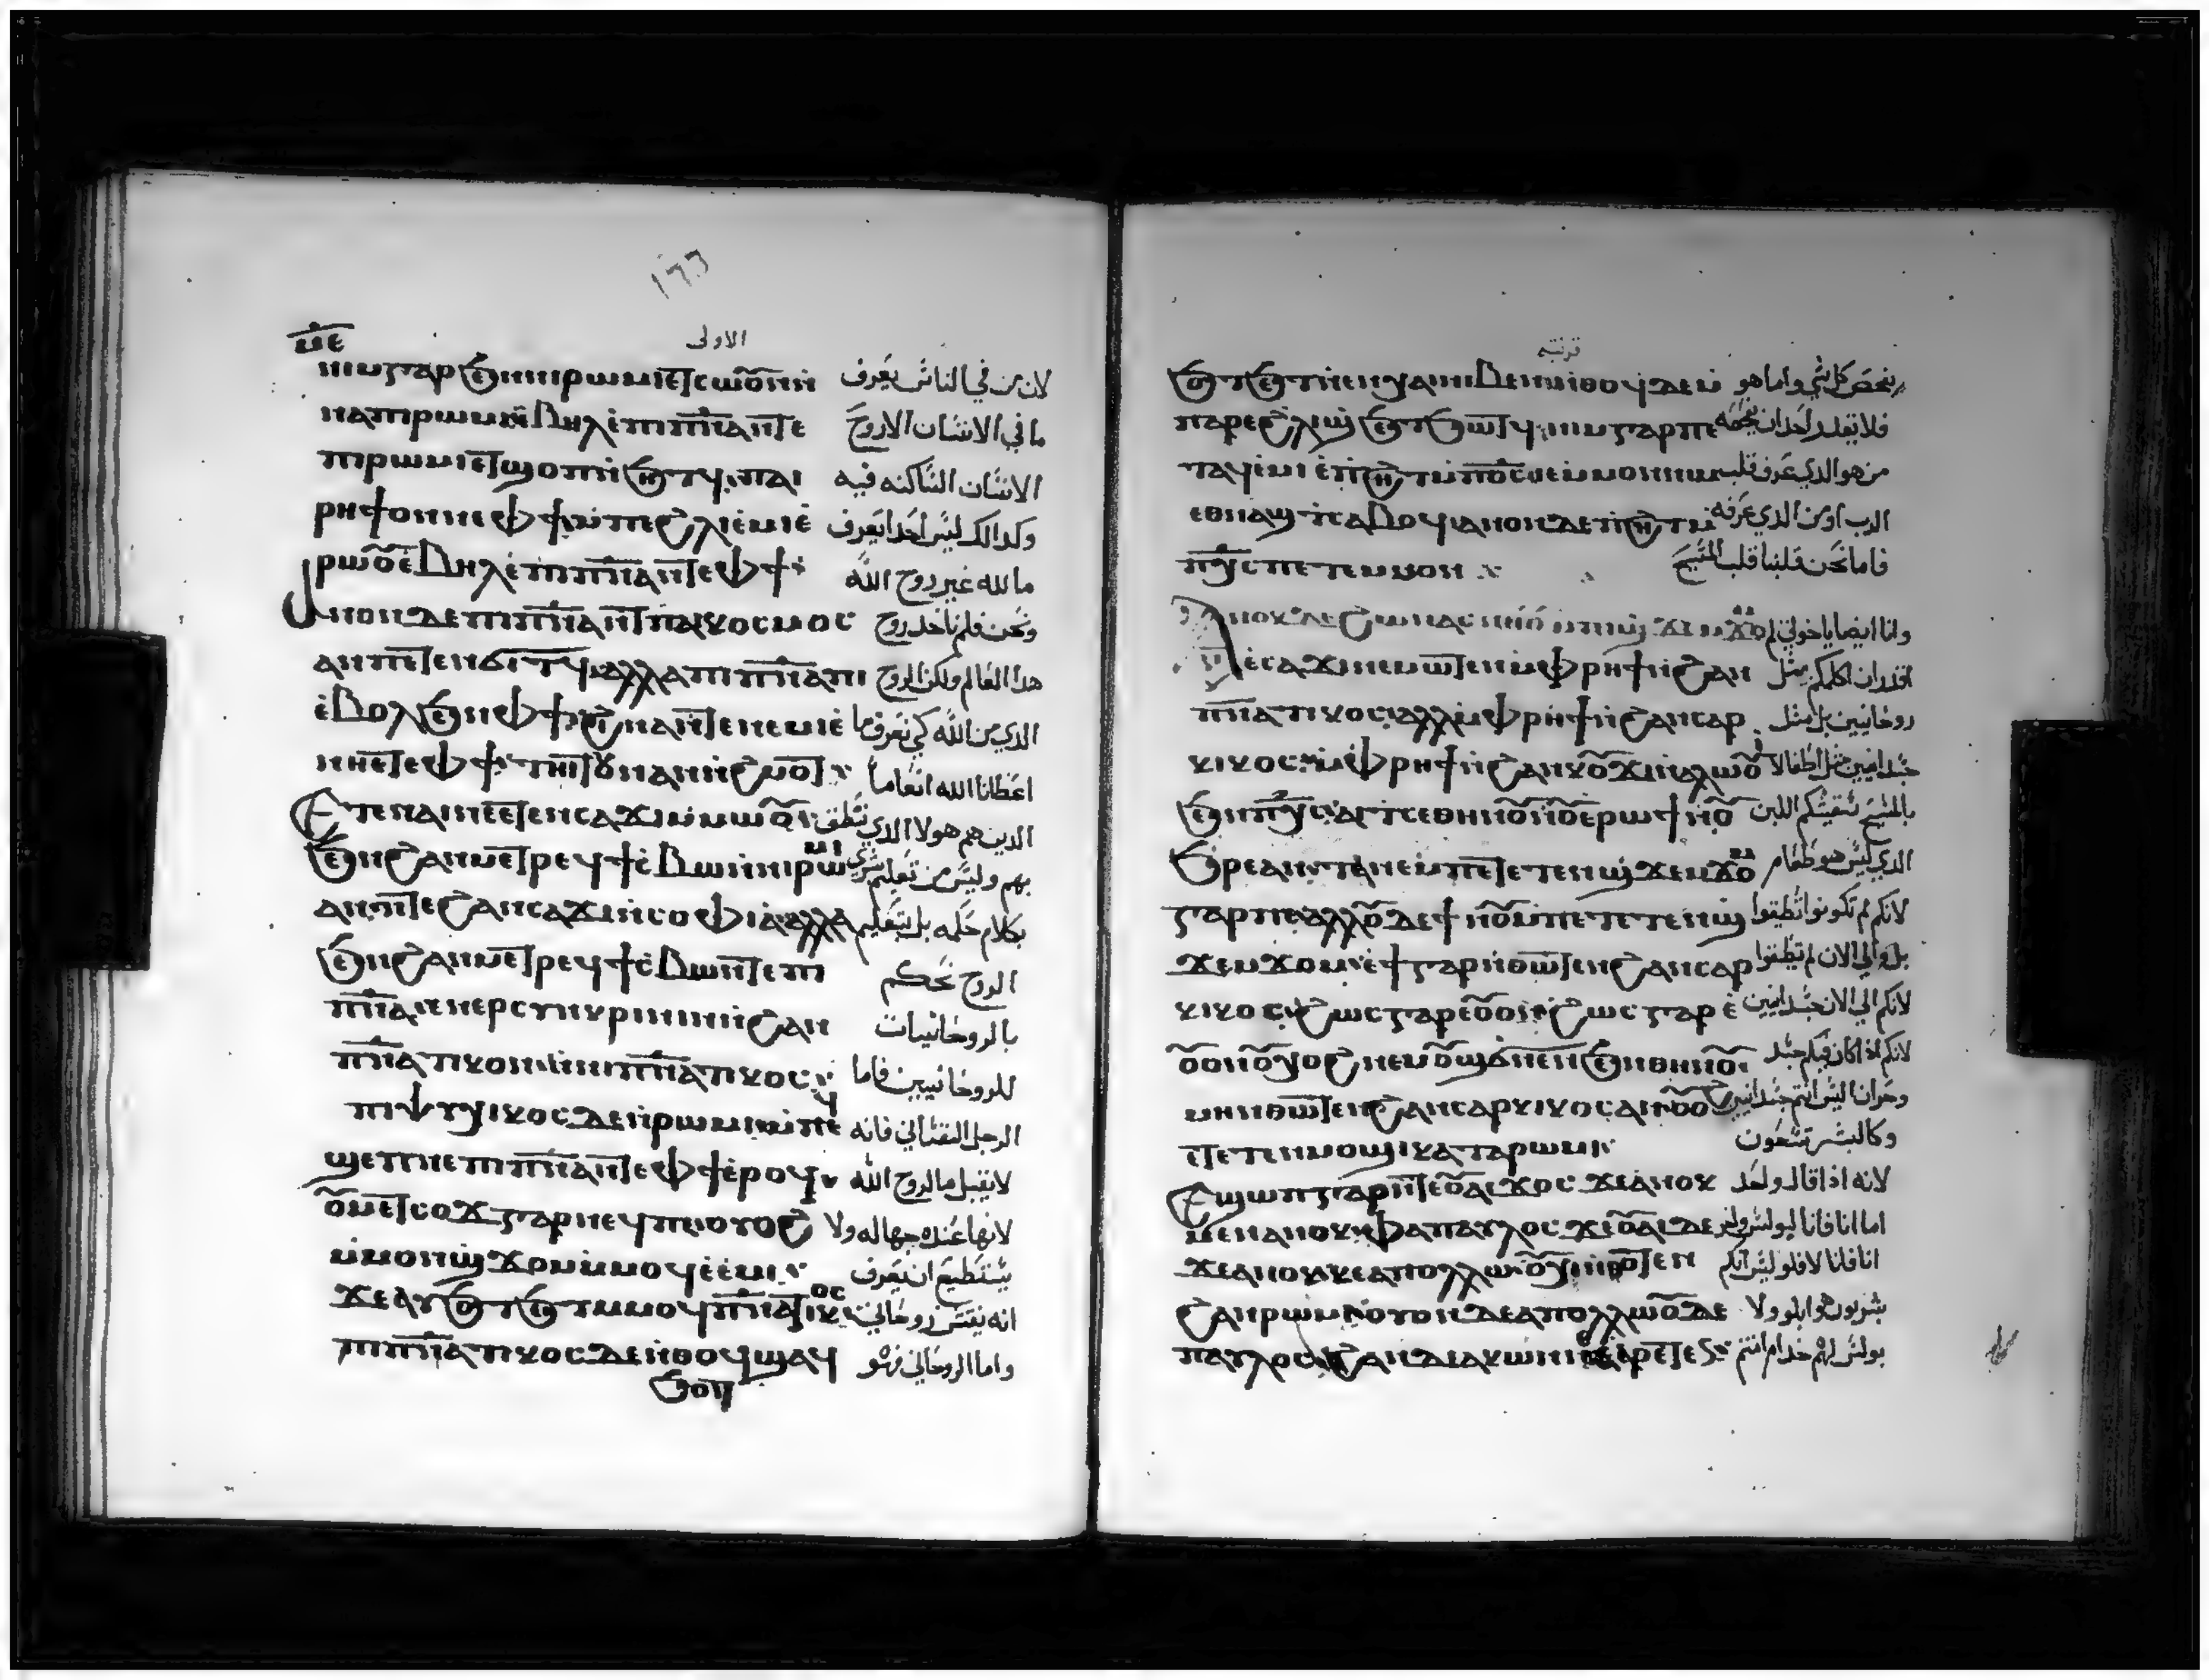 ١٦٦
الاولى
ⲛⲉ
ⲛⲓⲙ ⲅⲁⲣ ϧⲉⲛ ⲛⲓⲣⲱⲙⲓ ⲉⲧⲥⲱⲟⲩⲛ ⲛ̀ لان من في الناس يعرف
ⲛⲁ ⲡⲓⲣⲱⲙⲓ ⲉⲃⲏⲗ ⲉ̀ⲡⲓⲡ̅ⲛ̅ⲁ̅ ⲛ̀ⲧⲉ ما في الانسان الا روح
ⲡⲓⲣⲱⲙⲓ ⲉⲧϣⲟⲡ ⲛ̀ϧⲏⲧϥ ⲡⲁⲓ الانسان الساكنه فيه
ⲣⲏϯ ⲟⲛ ⲛⲉ ⲫϯ ⲙ̀ⲡⲉ ϩⲗⲓ ⲉ̀ⲙⲓ ⲉ̀ وكدالك ليس احدا يعرف
ⲣⲱⲟⲩ ⲉⲃⲏⲗ ⲉ̀ⲡⲓⲡ̅ⲛ̅ⲁ̅ ⲛ̀ⲧⲉ ⲫϯ ما لله غير روح الله
ⲁⲛⲟⲛ ⲇⲉ ⲡⲓⲡ̅ⲛ̅ⲁ̅ ⲛ̀ⲧⲉ ⲡⲁⲓⲕⲟⲥⲙⲟⲥ ونحن فلم ناخد روح
ⲁⲛ ⲡⲉⲧⲉⲛϭⲓⲧϥ ⲁⲗⲗⲁ ⲡⲓⲡ̅ⲛ̅ⲁ̅ ⲡⲓ هدا العالم ولكن الروح
ⲉ̀ⲃⲟⲗ ϧⲉⲛ ⲫϯ ϩⲓⲛⲁ ⲛ̀ⲧⲉⲛⲉⲙⲓ ⲉ̀ الدي من الله كي نعرف ما
ⲛⲏ ⲉⲧⲉ ⲫϯ ⲧⲏⲓⲧⲟⲩ ⲛⲁⲛ ⲛ̀ϩⲙⲟⲧ اعطانا الله انعاما
ⲉⲧⲉ ⲛⲁⲓ ⲛⲉ ⲉⲧⲉⲛⲥⲁϫⲓ ⲙ̀ⲙⲱⲟⲩ الدين هم هولا الدي ننطق
ϧⲉⲛ ϩⲁⲛⲙⲉⲧⲣⲉϥϯⲥⲃⲱ ⲛ̀ⲣⲱⲙⲓ بهم وليس من تعليم بشري
ⲁⲛ ⲛ̀ⲧⲉ ϩⲁⲛⲥⲁϫⲓ ⲛ̀ⲥⲟⲫⲓⲁ ⲁⲗⲗⲁ بكلام حكمه بل بتعليم
ϧⲉⲛ ϩⲁⲛⲙⲉⲧⲣⲉϥϯⲥⲃⲱ ⲛ̀ⲧⲉ ⲡⲓ الروح نحكم
ⲡ̅ⲛ̅ⲁ̅ ⲉⲛⲉⲣⲥⲩⲛⲕⲣⲓⲛⲓⲛ ⲛ̀ϩⲁⲛ بالروحانيات
ⲡ̅ⲛ̅ⲁ̅ⲧⲓⲕⲟⲛ ⲛⲓⲡ̅ⲛ̅ⲁ̅ⲧⲓⲕⲟⲥ للروحانيين فاما
ⲡⲓⲯⲩⲭⲓⲕⲟⲥ ⲇⲉ ⲛ̀ⲣⲱⲙⲓ ⲙ̀ⲡⲉϥ الرجل النفساني فانه
ϣⲉⲡ ⲛⲉ ⲡⲓⲡ̅ⲛ̅ⲁ̅ ⲛ̀ⲧⲉ ⲫϯ ⲉ̀ⲣⲟϥ لا يقبل ما لروح الله
ⲟⲩⲙⲉⲧⲥⲟϫ ⲅⲁⲣ ⲛⲉϥⲡⲉ ⲟⲩⲟϩ لانها عنده جهاله ولا
ⲙ̀ⲙⲟⲛ ϣϫⲟⲙ ⲙ̀ⲙⲟϥ ⲉ̀ⲉⲙⲓ يستطيع ان يعرف
ϫⲉ ⲁⲩϧⲟⲧϧⲉⲧ ⲙ̀ⲙⲟϥ ⲡ̅ⲛ̅ⲁ̅ⲧⲓⲕⲟⲥ انه يفتش روحاني
ⲡⲓⲡ̅ⲛ̅ⲁ̅ⲧⲓⲕⲟⲥ ⲇⲉ ⲛ̀ⲑⲟϥ ϣⲁϥ واما الروحاني فهو
ϧⲟⲧ
قرنتيه
ϧⲟⲧϧⲉⲧ ⲛ̀ⲉⲛⲭⲁⲓ ⲛⲓⲃⲉⲛ ⲛ̀ⲑⲟϥ ⲇⲉ ⲙ̀ يفحص كل شي واما هو
ⲡⲁⲣⲉ ϩⲗⲓ ϣϧⲉⲧϧⲱⲧϥ ⲛⲓⲙ ⲅⲁⲣ ⲡⲉ فلا يقدر احدا ان يفحصه
ⲧⲁϥⲉⲙⲓ ⲉ̀ⲡϩⲏⲧ ⲙ̀ⲡⲟ̅ⲥ̅ ⲓⲉ ⲙ̀ⲙⲟⲛ ⲛⲓⲙ من هو الدي عرف قلب
ⲉⲑⲛⲁϣⲧⲥⲁⲃⲟϥ ⲁⲛⲟⲛ ⲇⲉ ⲡϩⲏⲧ ⲙ̀ الرب او من الدي عرفه
ⲡⲭ̅ⲥ̅ ⲡⲉⲧⲉⲛⲙⲟⲛ فاما نحن قلبنا قلب المسيح
ⲁⲛⲟⲕ ⲇⲉ ϩⲱ ⲛⲁⲥⲛⲏⲟⲩ ⲙ̀ⲡⲓϣϫⲉⲙϫⲟⲙ وانا ايضا يا خوتي لم
ⲉ̀ⲥⲁϫⲓ ⲛⲉⲙⲱⲧⲉⲛ ⲙ̀ⲫⲣⲏϯ ⲛ̀ϩⲁⲛ اقدر ان اكلمكم مثل
ⲡ̅ⲛ̅ⲁ̅ⲧⲓⲕⲟⲥ ⲁⲗⲗⲁ ⲙ̀ⲫⲣⲏϯ ⲛ̀ϩⲁⲛⲥⲁⲣ روحانيين بل مثل
ⲕⲓⲕⲟⲥ ⲙ̀ⲫⲣⲏϯ ⲛ̀ϩⲁⲛⲕⲟⲩϫⲓ ⲛ̀ⲁⲗⲱⲟⲩⲓ جسدانيين مثل اطفالا
ϧⲉⲛ ⲡⲭ̅ⲥ̅ ⲁⲓⲧⲥⲉ ⲑⲏⲛⲟⲩ ⲛ̀ⲟⲩⲉⲣⲱϯ ⲛ̀ⲟⲩ بالمسيح سقيتكم اللبن
ϧⲣⲉ ⲁⲛ ⲧⲉ ⲛⲉ ⲙ̀ⲡⲉⲧⲉⲧⲉⲛϣϫⲉⲙϫⲟⲙ الدي ليس هو طعام
ⲅⲁⲣ ⲡⲉ ⲁⲗⲗⲁ ⲟⲩⲇⲉ ϯⲛⲟⲩ ⲙ̀ⲡⲉⲧⲉⲧⲉⲛϣ لانكم لم تكونوا تطيقوا
ϫⲉⲙϫⲟⲙ ⲉϯ ⲅⲁⲣ ⲛ̀ⲑⲱⲧⲉⲛ ϩⲁⲛⲥⲁⲣ بل والي الان لم تطيقوا
ⲕⲓⲕⲟⲥ ϩⲱⲥ ⲅⲁⲣ ⲉ̀ⲟⲩⲟⲛ لانكم الي الان جسدانيين
ⲟⲩⲟⲛ ⲟⲩⲭⲟϩ ⲛⲉⲙ ⲟⲩϣϭⲛⲏⲛ ϧⲉⲛ ⲑⲏⲛⲟⲩ لانكم اذا كان فيكم حسد
ⲙⲏ ⲛ̀ⲑⲱⲧⲉⲛ ϩⲁⲛⲥⲁⲣⲕⲓⲕⲟⲥ ⲁⲛ ⲟⲩⲟϩ اليس انتم جسدانيين
ⲉⲣⲉⲧⲉⲛⲙⲟϣⲓ ⲕⲁⲧⲁ ⲣⲱⲙⲓ وكالبشر تسعون
ⲉϣⲱⲡ ⲅⲁⲣ ⲛ̀ⲧⲉ ⲟⲩⲁⲓ ϫⲟⲥ ϫⲉ ⲁⲛⲟⲕ لانه اذا قال واحد
ⲙⲉⲛ ⲁⲛⲟⲕ ⲫⲁ ⲡⲁⲩⲗⲟⲥ ⲕⲉⲟⲩⲁⲓ ⲇⲉ اما انا فانا لبولس
ϫⲉ ⲁⲛⲟⲕ ⲫⲁ ⲁⲡⲟⲗⲗⲱ ⲟⲩⲭⲓ ⲛ̀ⲑⲱⲧⲉⲛ انا فانا لافلو ليس انكم
ϩⲁⲛⲣⲱⲙⲓ ⲟⲩ ⲟⲩⲛ ⲇⲉ ⲁⲡⲟⲗⲗⲱ ⲟⲩ ⲇⲉ بشريون
ⲡⲁⲩⲗⲟⲥ ϩⲁⲛⲇⲓⲁⲕⲱⲛ ⲛⲉ ⲉ̀ⲁⲣⲉⲧⲉⲛ بولس خدام انتم